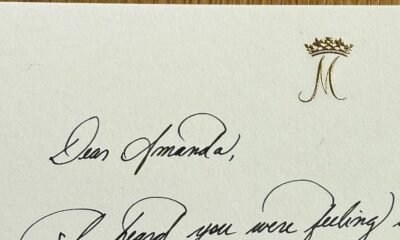 M
Dear Amanda,
I heard you were feeling